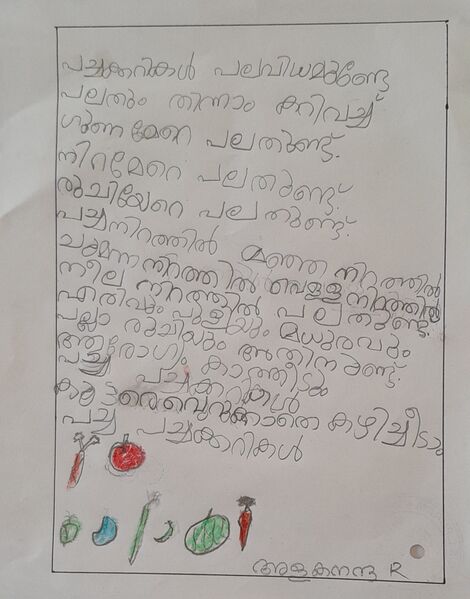 പച്ചക്കറികൾ പലവിധമുണ്ടേ
പലതും തിന്നാം കറിവച്ച്
ഗുണമേറെ പലതുണ്ട്.
നിറമേറെ പലതുണ്ട്.
രുചിയേറെ പലതുണ്ട്.
പച്ചനിറത്തിൽ മഞ്ഞ നിറത്തിൽ
ചുമന്ന നിറത്തിൽ വെള്ള നിറത്തിൽ
നീല നിറത്തിൽ പലതുണ്ട്.
എരിവും പുളിയും മധുരവും
പല്ലാ രുചിയും അതിനുണ്ട്.
ആരോഗ്യം കാത്തീടും
പച്ച പച്ചക്കറികൾ
വെറുക്കാതെ കഴിച്ചീടാം
പച്ച പച്ചക്കറികൾ
അളകനന്ദ R